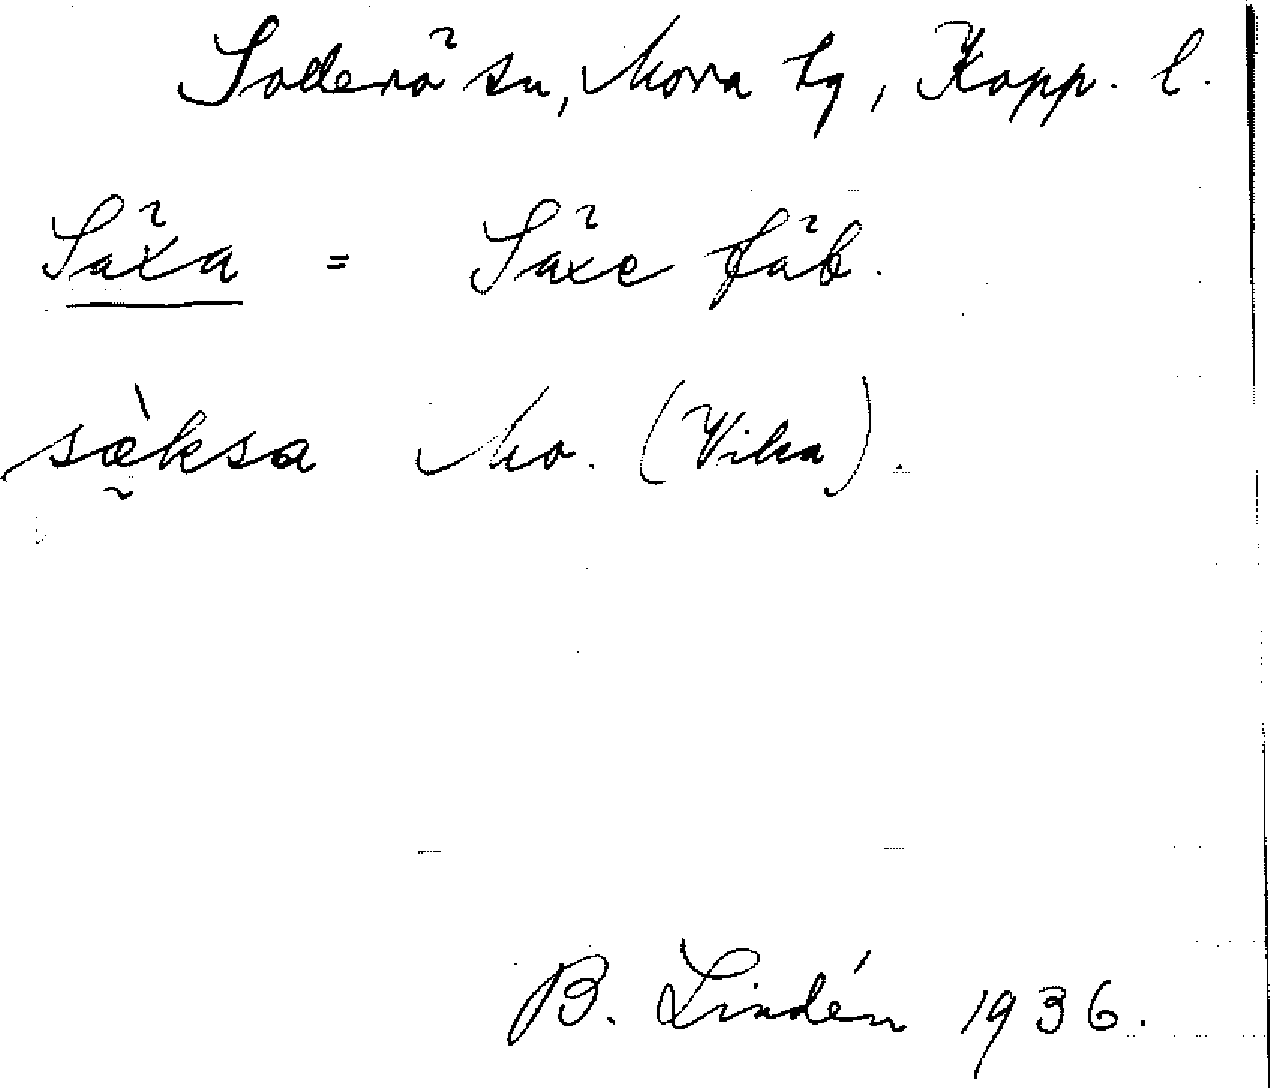 Sollerö sn, Mora tg, Kopp. l.
Säxa = Säxe fäb.
sæ̀ksa Mo. (Vika).
B. Lindén 1936.